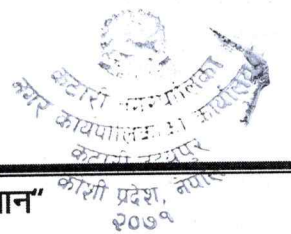 कटारी नगरपालिका
नगर कार्यपालिकाको कार्यालय
कटारी उदयपुर
कोशी प्रदेश, नेपाल
२०७१
ान"